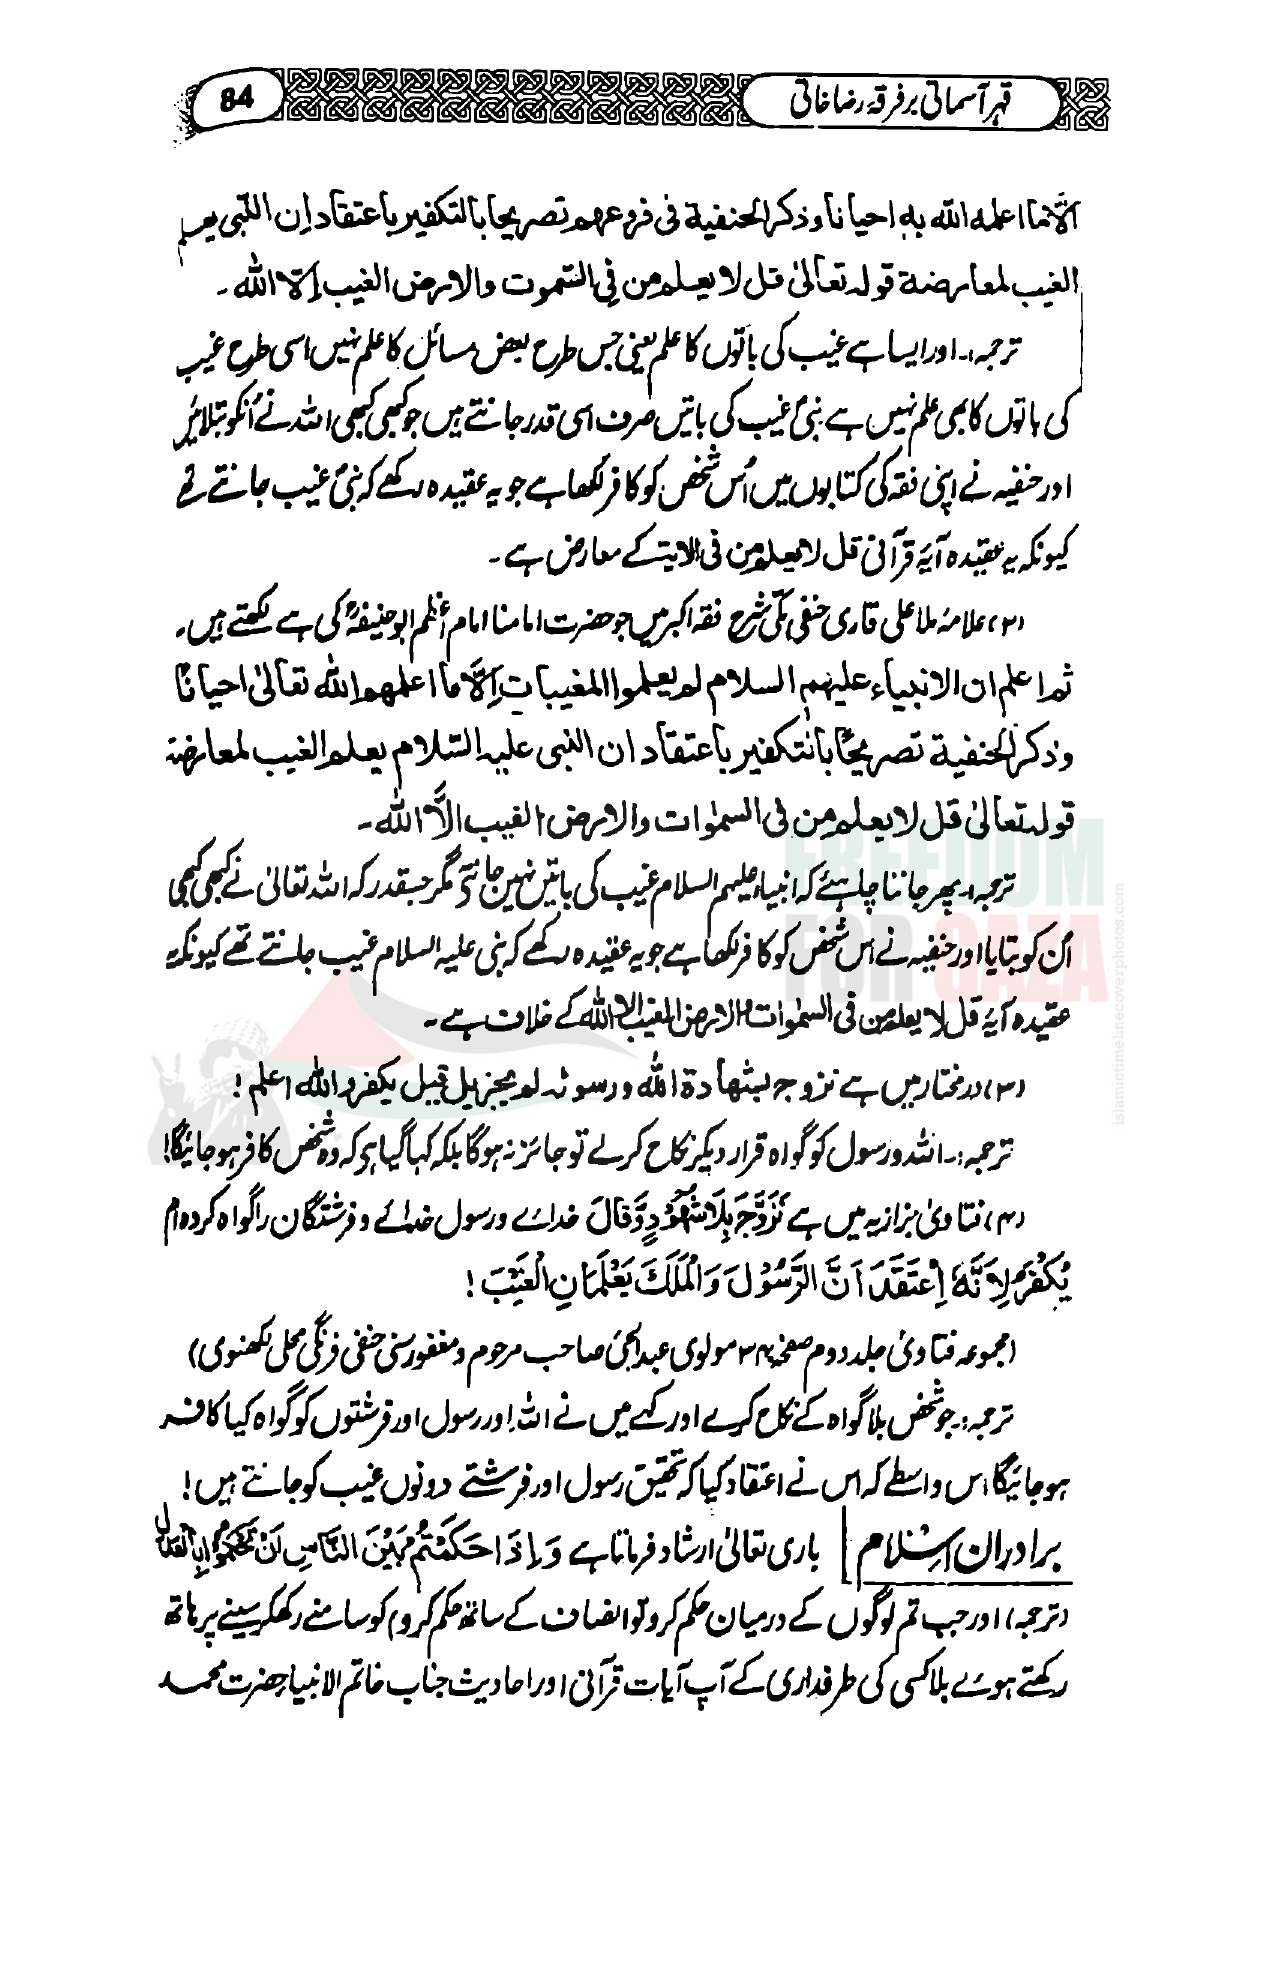 84
قہر آسمانی بر فرقہ رضاخانی
الّا ما اعلمہ اللہ بہٖ احیانا و ذکر الحنفیۃ فی فروعہم تصریحا بالتکفیر باعتقاد ان النّبی یعلم
الغیب لمعارضۃ قولہ تعالیٰ قل لا یعلم من فی السّمٰوٰت والارض الغیب اِلّا اللہ ۔
ترجمہ:۔ اور ایسا ہے غیب کی باتوں کا علم یعنی جس طرح بعض مسائل کا علم نہیں اسی طرح غیب
کی باتوں کا بھی علم نہیں ہے نبیؐ غیب کی باتیں صرف اسی قدر جانتے ہیں جو کبھی کبھی اللہ نے اُنکو بتلائیں
اور حنفیہ نے اپنی فقہ کی کتابوں میں اُس شخص کو کافر لکھا ہے جو یہ عقیدہ رکھے کہ نبیؐ غیب جانتے تھے
کیونکہ یہ عقیدہ آیۂ قرآنی قل لا یعلم من فی الایۃ کے معارض ہے ۔
(۲) علامہ ملا علی قاری حنفی مکّی شرح فقہ اکبر میں جو حضرت امامنا امام اعظم ابو حنیفہؒ کی ہے لکھتے ہیں۔
ثم اعلم ان الانبیاء علیہم السلام لم یعلموا المغیبات اِلّا ما اعلمہم اللہ تعالیٰ احیاناً
وذکر الحنفیۃ تصریحًا بالتکفیر باعتقاد ان النبی علیہ السّلام یعلم الغیب لمعارضۃ
قولہ تعالیٰ قل لا یعلم من فی السمٰوات والارض الغیب الّا اللہ ۔
ترجمہ، پھر جاننا چاہئے کہ انبیاء علیہم السلام غیب کی باتیں نہین جانتے مگر جسقدر کہ اللہ تعالیٰ نے کبھی کبھی
اُن کو بتایا اور حنفیہ نے اس شخص کو کافر لکھا ہے جو یہ عقیدہ رکھے کہ نبی علیہ السلام غیب جانتے تھے کیونکہ یہ
عقیدہ آیۂ قل لا یعلم من فی السمٰوات والارض الغیب الا اللہ کے خلاف ہے ۔
(۳) درمختار میں ہے تزوجہ بشہادۃ اللہ ورسولہ لم یجز بل قیل یکفر واللہ اعلم !
ترجمہ :۔ اللہ ورسول کو گواہ قرار دیکر نکاح کرلے تو جائز نہ ہوگا بلکہ کہا گیا ہی کہ وہ شخص کافر ہوجائیگا!
(۴) فتاویٰ بزازیہ میں ہے تَزَوَّجَ بِلَا شُہُوْدٍ وَّقَالَ خدائے و رسول خدائے و فرشتگان را گواہ کردہ ام
یُکْفَرُ لِاَنَّہٗ اِعْتَقَدَ اَنَّ الرَّسُوْلَ وَالْمَلَکَ یَعْلَمَانِ الْغَیْبَ !
(مجموعہ فتاویٰ جلد دوم صفحہ ۳۴ مولوی عبدالحئی صاحب مرحوم و مغفور سنی حنفی فرنگی محلی لکھنوی)
ترجمہ :۔ جو شخص بلا گواہ کے نکاح کرے اور کہے میں نے اللہ اور رسول اور فرشتوں کو گواہ کیا کافر
ہوجائیگا اس واسطے کہ اس نے اعتقاد کیا کہ تحقیق رسول اور فرشتے دونوں غیب کو جانتے ہیں !
برادران اسلام باری تعالیٰ ارشاد فرماتا ہے وَاِذَا حَکَمْتُمْ بَیْنَ النَّاسِ اَنْ تَحْکُمُوْا بِالْعَدْلِ
(ترجمہ) اور جب تم لوگوں کے درمیان حکم کرو تو انصاف کے ساتھ حکم کرو م کو سامنے رکھکر سینے پر ہاتھ
رکھتے ہوئے بلا کسی کی طرفداری کے آپ آیات قرآنی اور احادیث جناب خاتم الانبیاء حضرت محمد
FREEDOM
FOR GAZA
islamictimelinecoverphotos.com